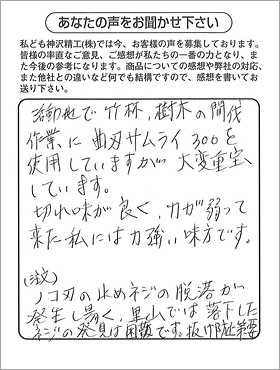 あなたの声をお聞かせ下さい
私ども神沢精工(株)では今、お客様の声を募集しております。
皆様の率直なご意見、ご感想が私たちの一番の力となり、ま
た今後の参考になります。商品についての感想や弊社の対応、
また他社との違いなど何でも結構ですので、感想を書いてお
送り下さい。
活動地で竹林，樹木の間伐
作業に曲刃サムライ300を
使用していますが大変重宝
しています。
切れ味が良く，力が弱って
来た私には力強い味方です。
(注文)
ノコ刃の止めネジの脱落が
発生し易く、里山では落下した
ネジの発見は困難です。抜け防止策要